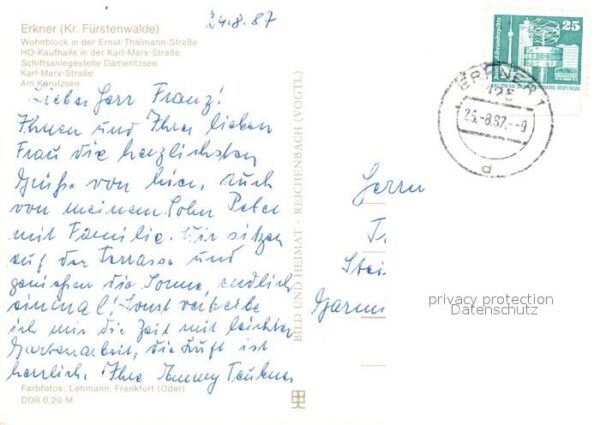 24.8.87
Erkner (Kr. Fürstenwalde)
Wohnblock in der Ernst-Thälmann-Straße
HO-Kaufhalle in der Karl-Marx-Straße
Schiffsanlegestelle Dämeritzsee
Karl-Marx-Straße
Am Karutzsee
Lieber Herr Franz!
Ihnen und Ihrer lieben
Frau die herzlichsten
Grüße von hier, auch
von meinem Sohn Peter
mit Familie. Wir sitzen
auf der Terrasse und
genießen die Sonne, endlich
einmal! Sonst vertreibe
ich mir die Zeit mit leichter
Gartenarbeit, die Luft ist
herrlich. Ihre
Farbfotos: Lehmann, Frankfurt (Oder)
DDR 0,20 M
BILD UND HEIMAT · REICHENBACH (VOGTL)
25
ERKNER 1
125
25.-8.87.--9
d
Herrn
Garmi
privacy protection
Datenschutz